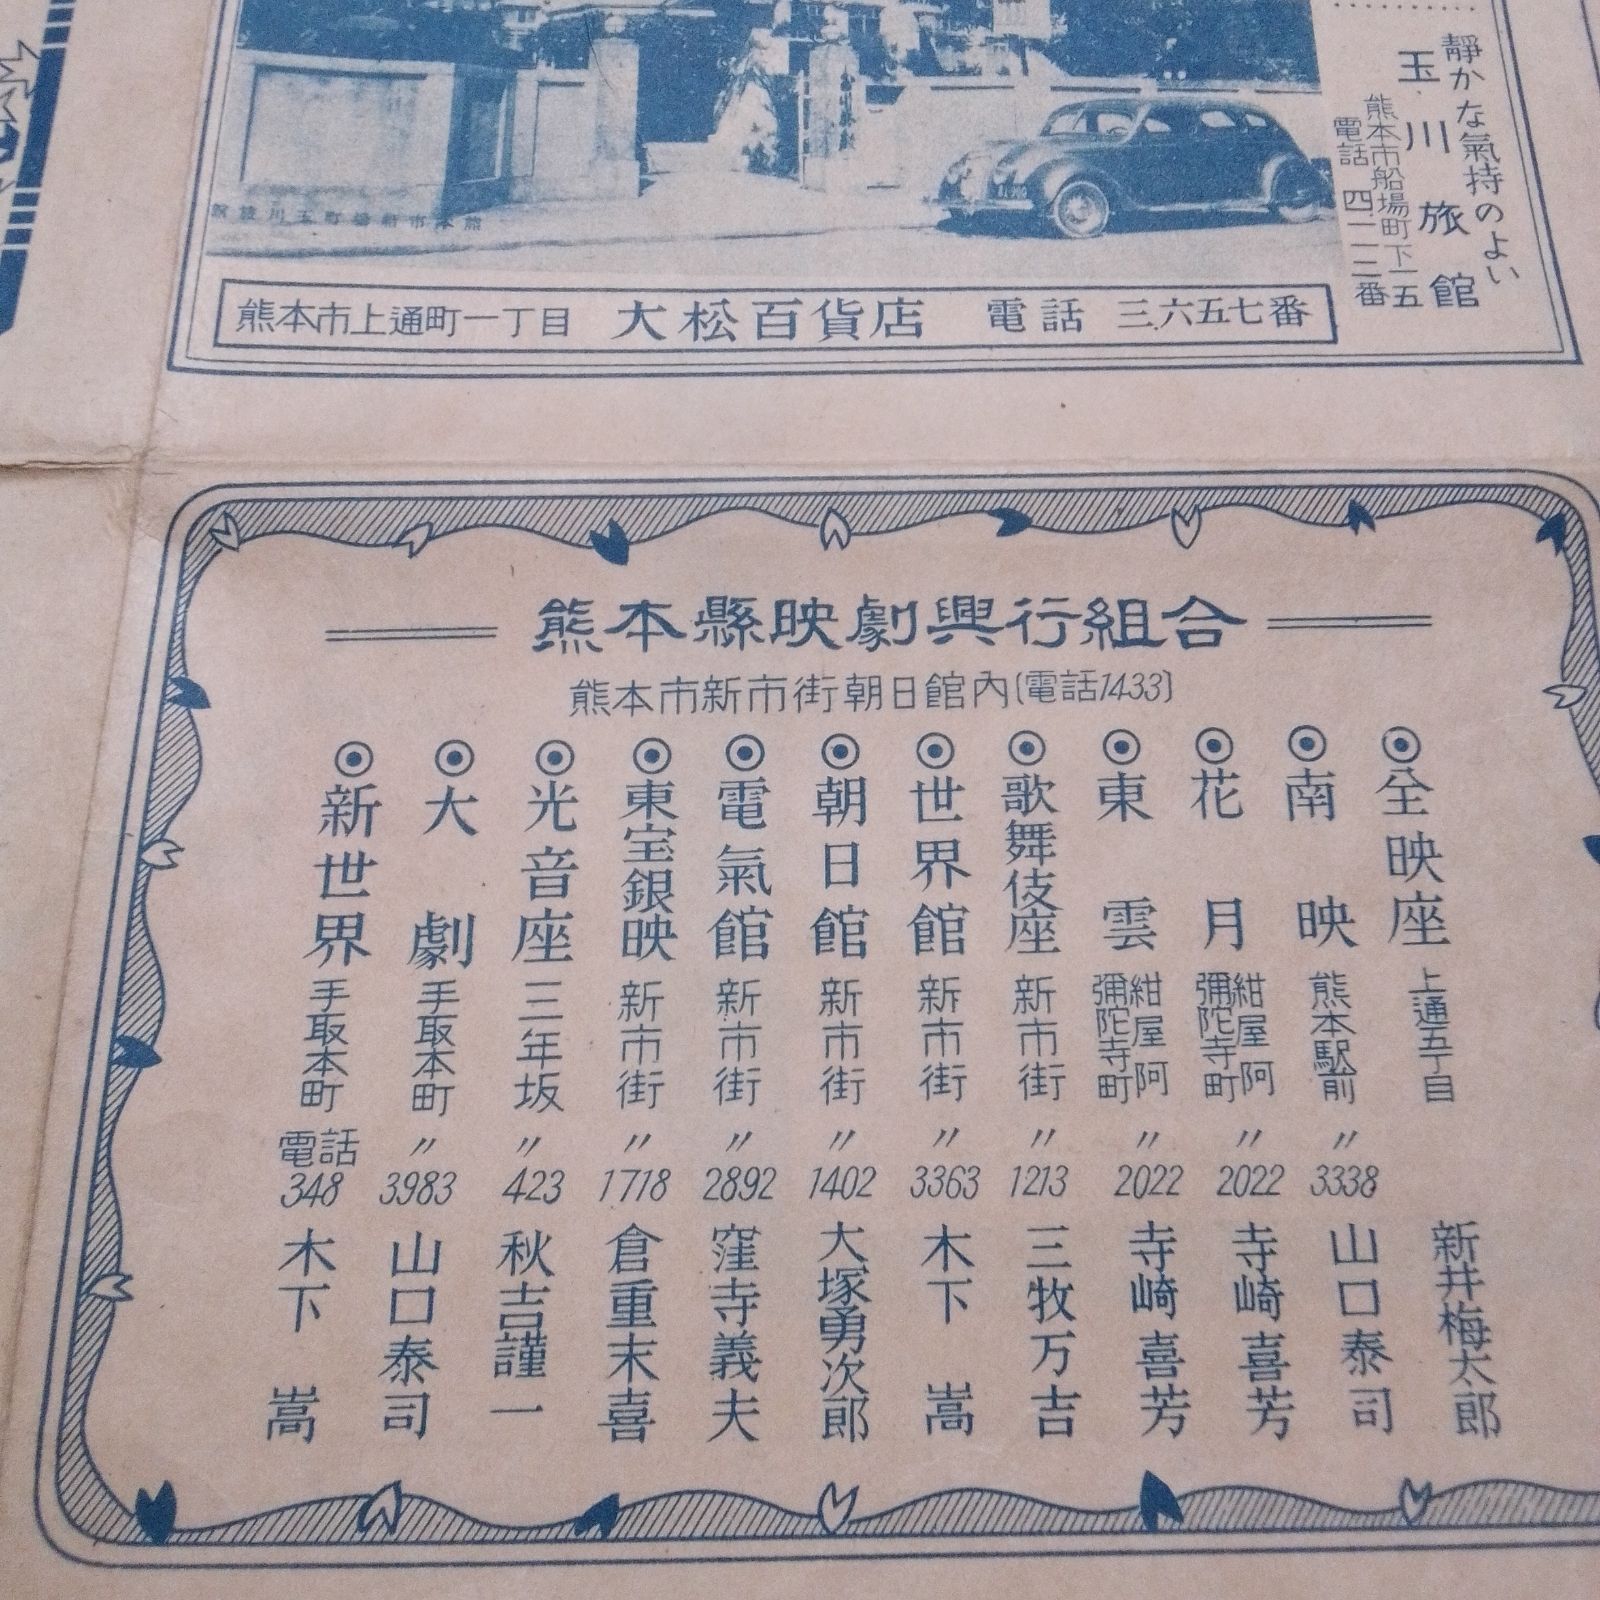 靜かな氣持のよい
玉川旅館
熊本市船場町下一五
電話 四一一三番
熊本市船場町玉川旅館
熊本市上通町一丁目 大松百貨店 電話 三六五七番
熊本縣映劇興行組合
熊本市新市街朝日館內(電話1433)
◉全映座 上通五丁目 新井梅太郎
◉南映 熊本駅前 〃3338 山口泰司
◉花月 紺屋阿彌陀寺町 〃2022 寺崎喜芳
◉東雲 紺屋阿彌陀寺町 〃2022 寺崎喜芳
◉歌舞伎座 新市街 〃1213 三牧万吉
◉世界館 新市街 〃3363 木下嵩
◉朝日館 新市街 〃1402 大塚勇次郎
◉電氣館 新市街 〃2892 窪寺義夫
◉東宝銀映 新市街 〃1718 倉重末喜
◉光音座 三年坂 〃423 秋吉謹一
◉大劇 手取本町 〃3983 山口泰司
◉新世界 手取本町 電話348 木下嵩